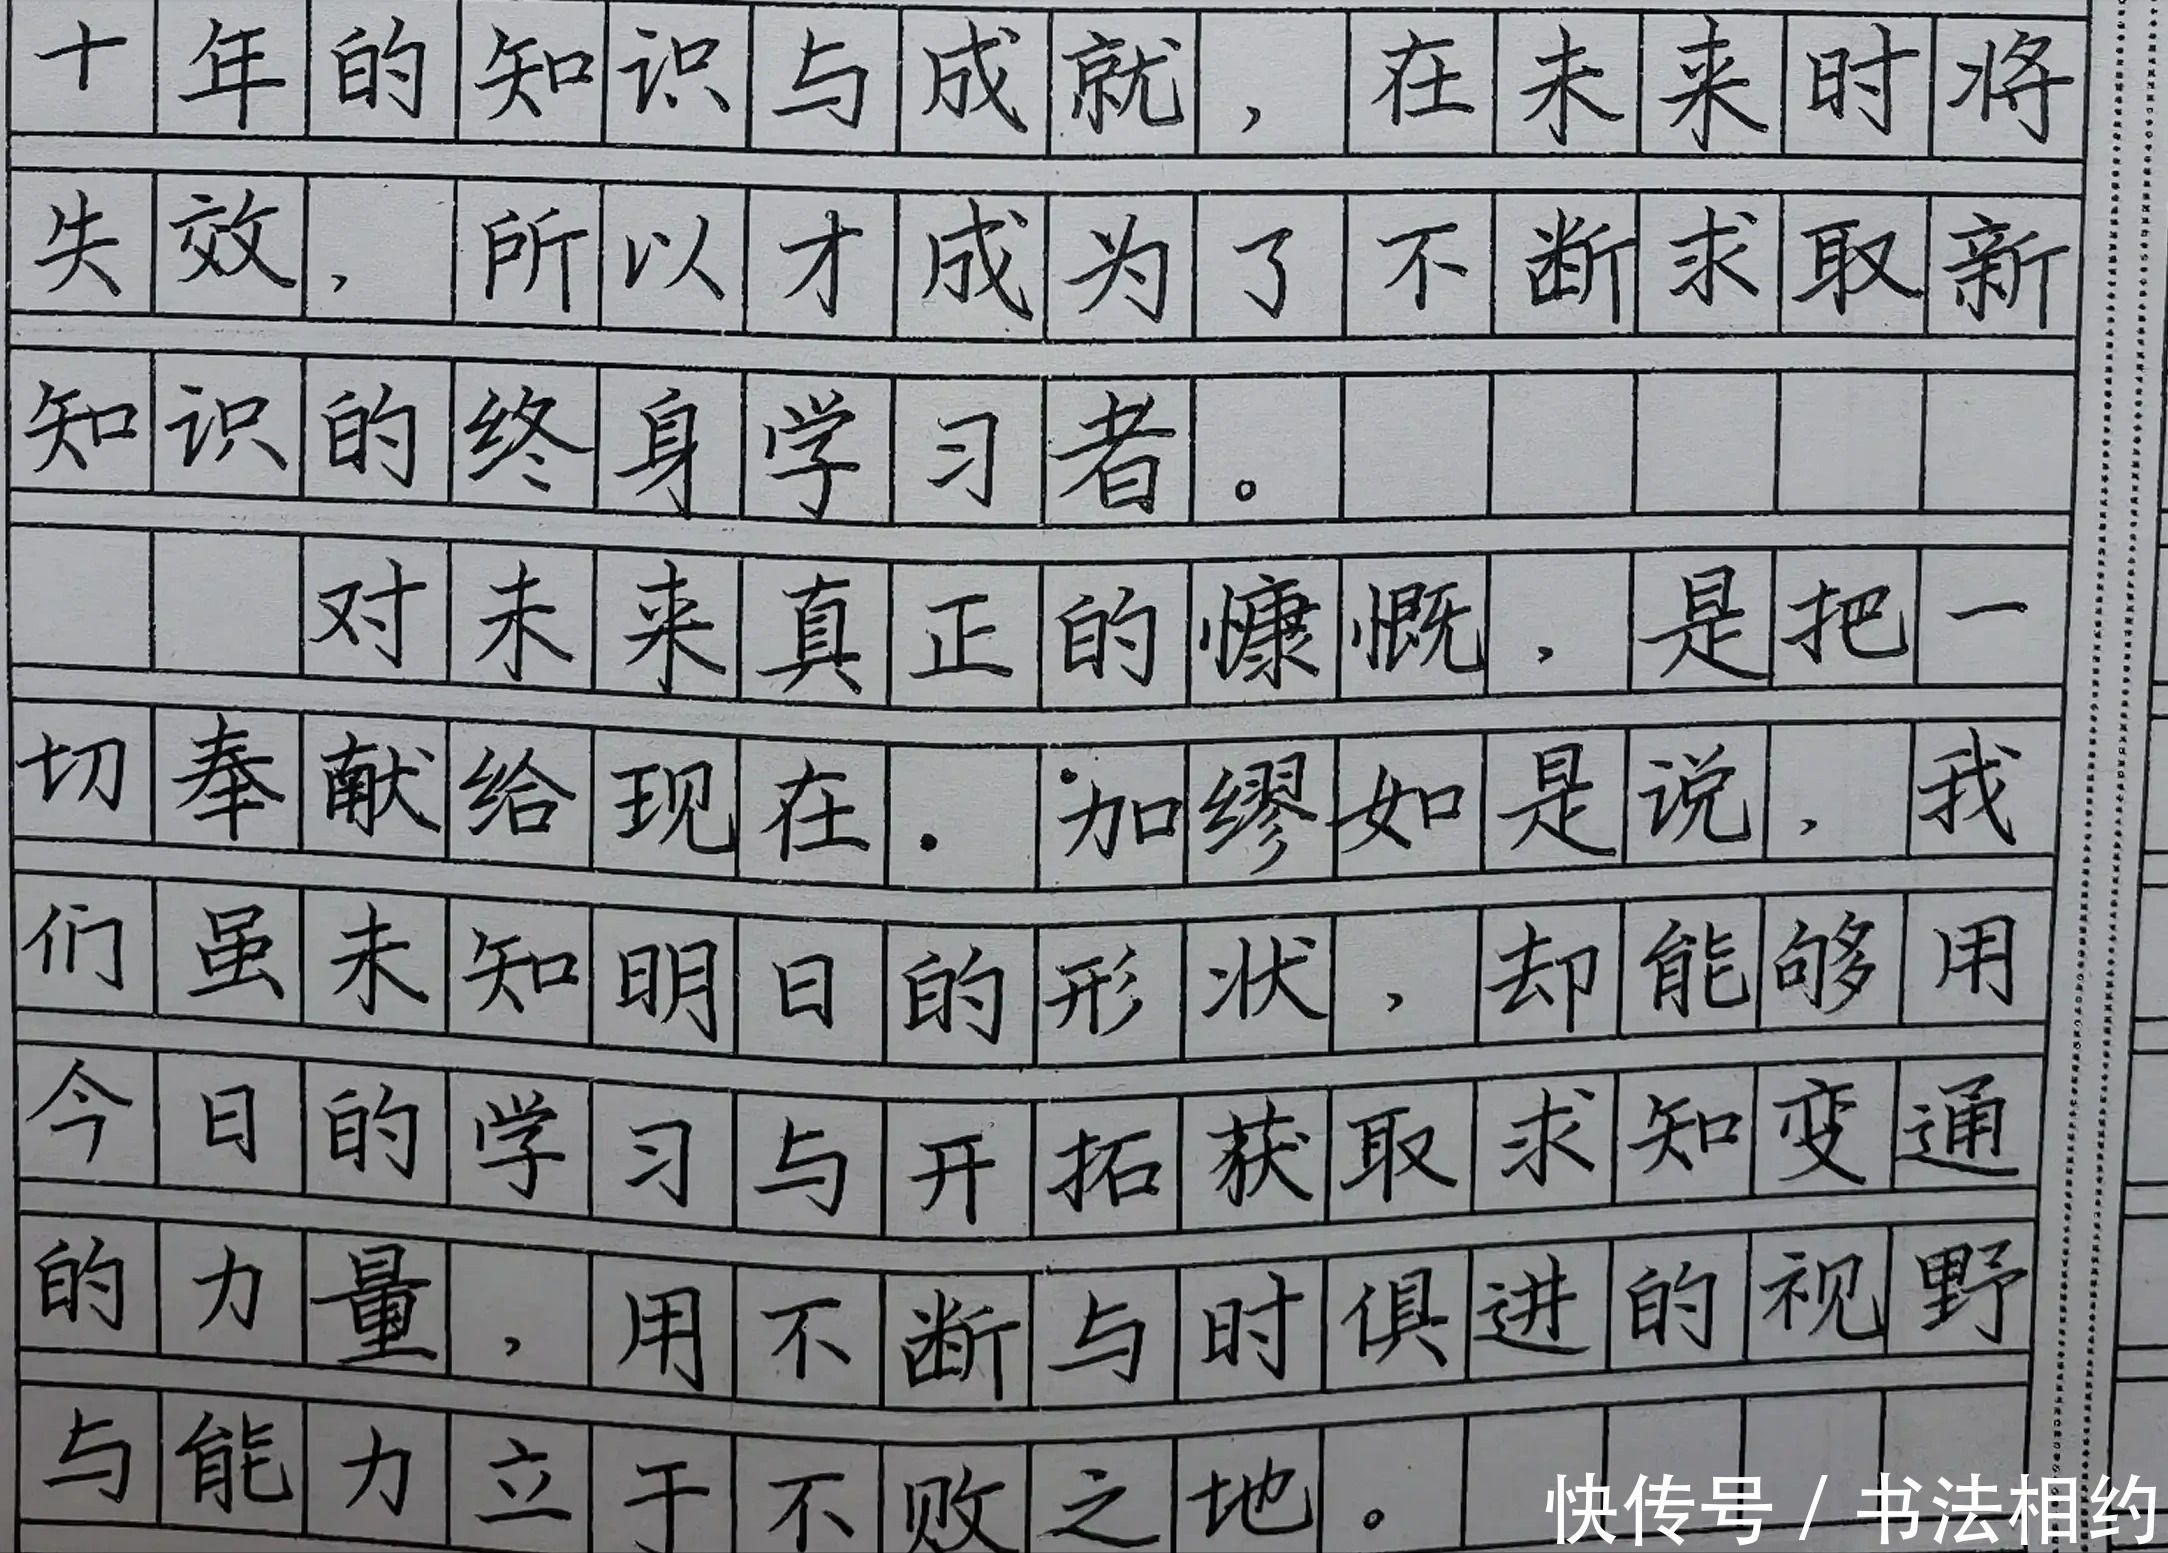 十年的知识与成就，在未来时将
失效，所以才成为了不断求取新
知识的终身学习者。
对未来真正的慷慨，是把一
切奉献给现在.加缪如是说，我
们虽未知明日的形状，却能够用
今日的学习与开拓获取求知变通
的力量，用不断与时俱进的视野
与能力立于不败之地。
快传号/书法相约